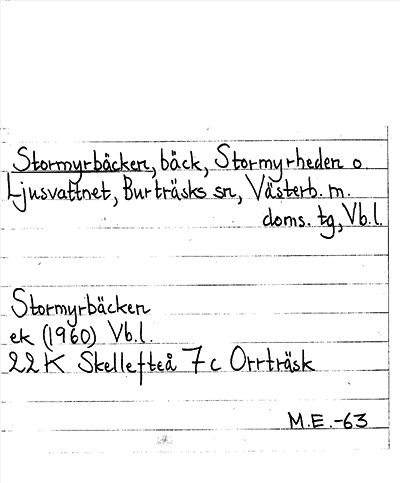 Stormyrbäcken, bäck, Stormyrheden o.
Ljusvattnet, Burträsks sn, Västerb. m.
doms. tg, Vb.l.
Stormyrbäcken
ek (1960) Vb.l.
22K Skellefteå 7c Orrträsk
M.E.-63